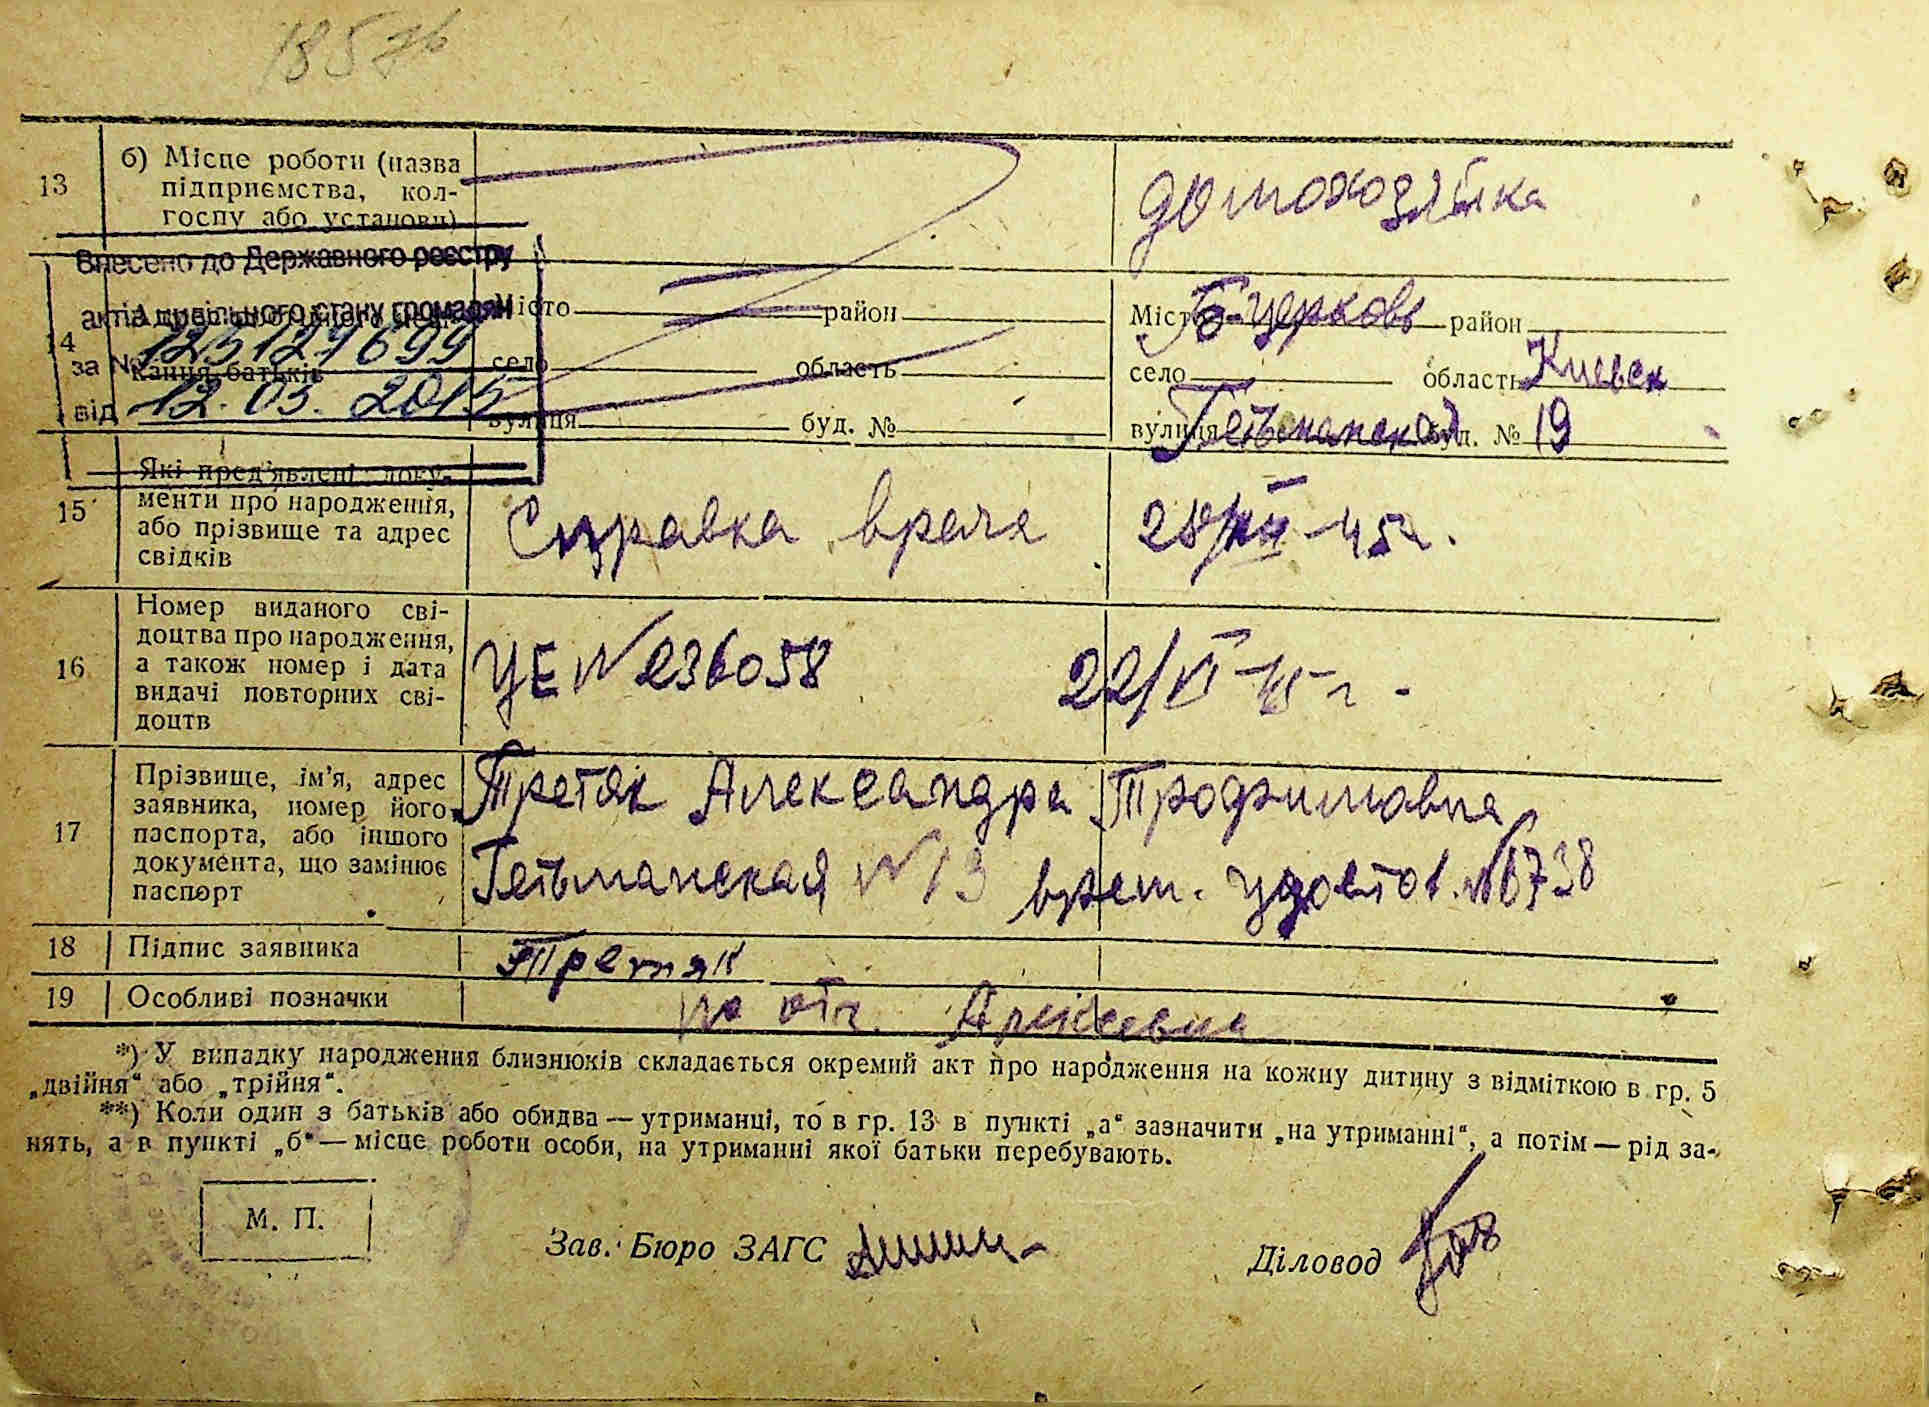 185
13
б) Місце роботи (назва
підприємства, кол-
госпу або установи)
домохозяйка
Внесено до Державного реєстру
актів цивільного стану громадян
за № 12312 699
від 12.03.2015
14
Місто район
село область
вулиця буд. №
Місто Б-Церковь район
село область Киевск
вулиця Гетьманская буд. № 19
15
Які пред'явлені доку-
менти про народження,
або прізвище та адрес
свідків
Справка врача
28/ -45г.
16
Номер виданого сві-
доцтва про народження,
а також номер і дата
видачі повторних сві-
доцтв
УЕ №236058
22/VI-45 г.
17
Прізвище, ім'я, адрес
заявника, номер його
паспорта, або іншого
документа, що замінює
паспорт
Третяк Александра Трофимовна
Гетьманская №13 врем. удостов. №6738
18
Підпис заявника
Третяк
19
Особливі позначки
по отч.
*) У випадку народження близнюків складається окремий акт про народження на кожну дитину з відміткою в гр. 5
„двійня“ або „трійня“.
**) Коли один з батьків або обидва — утриманці, то в гр. 13 в пункті „а“ зазначити „на утриманні“, а потім — рід за-
нять, а в пункті „б“ — місце роботи особи, на утриманні якої батьки перебувають.
М. П.
Зав. Бюро ЗАГС
Діловод